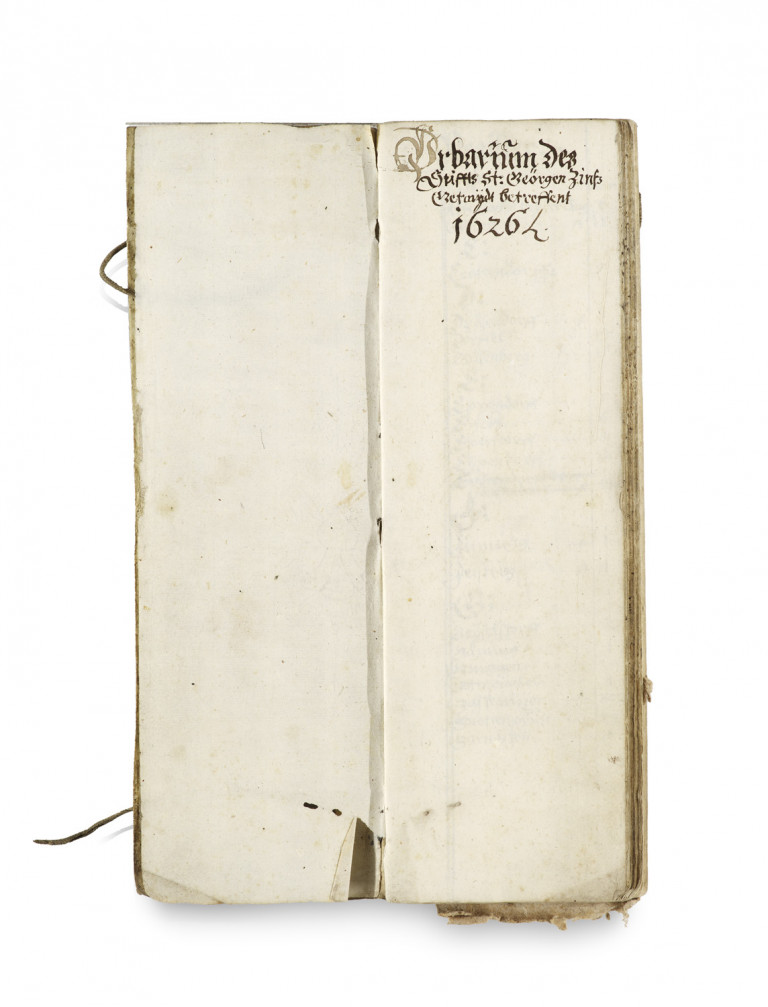 Urbarium des
Stiffts St: Geörgen Zinß
Getraydt betreffent
1626